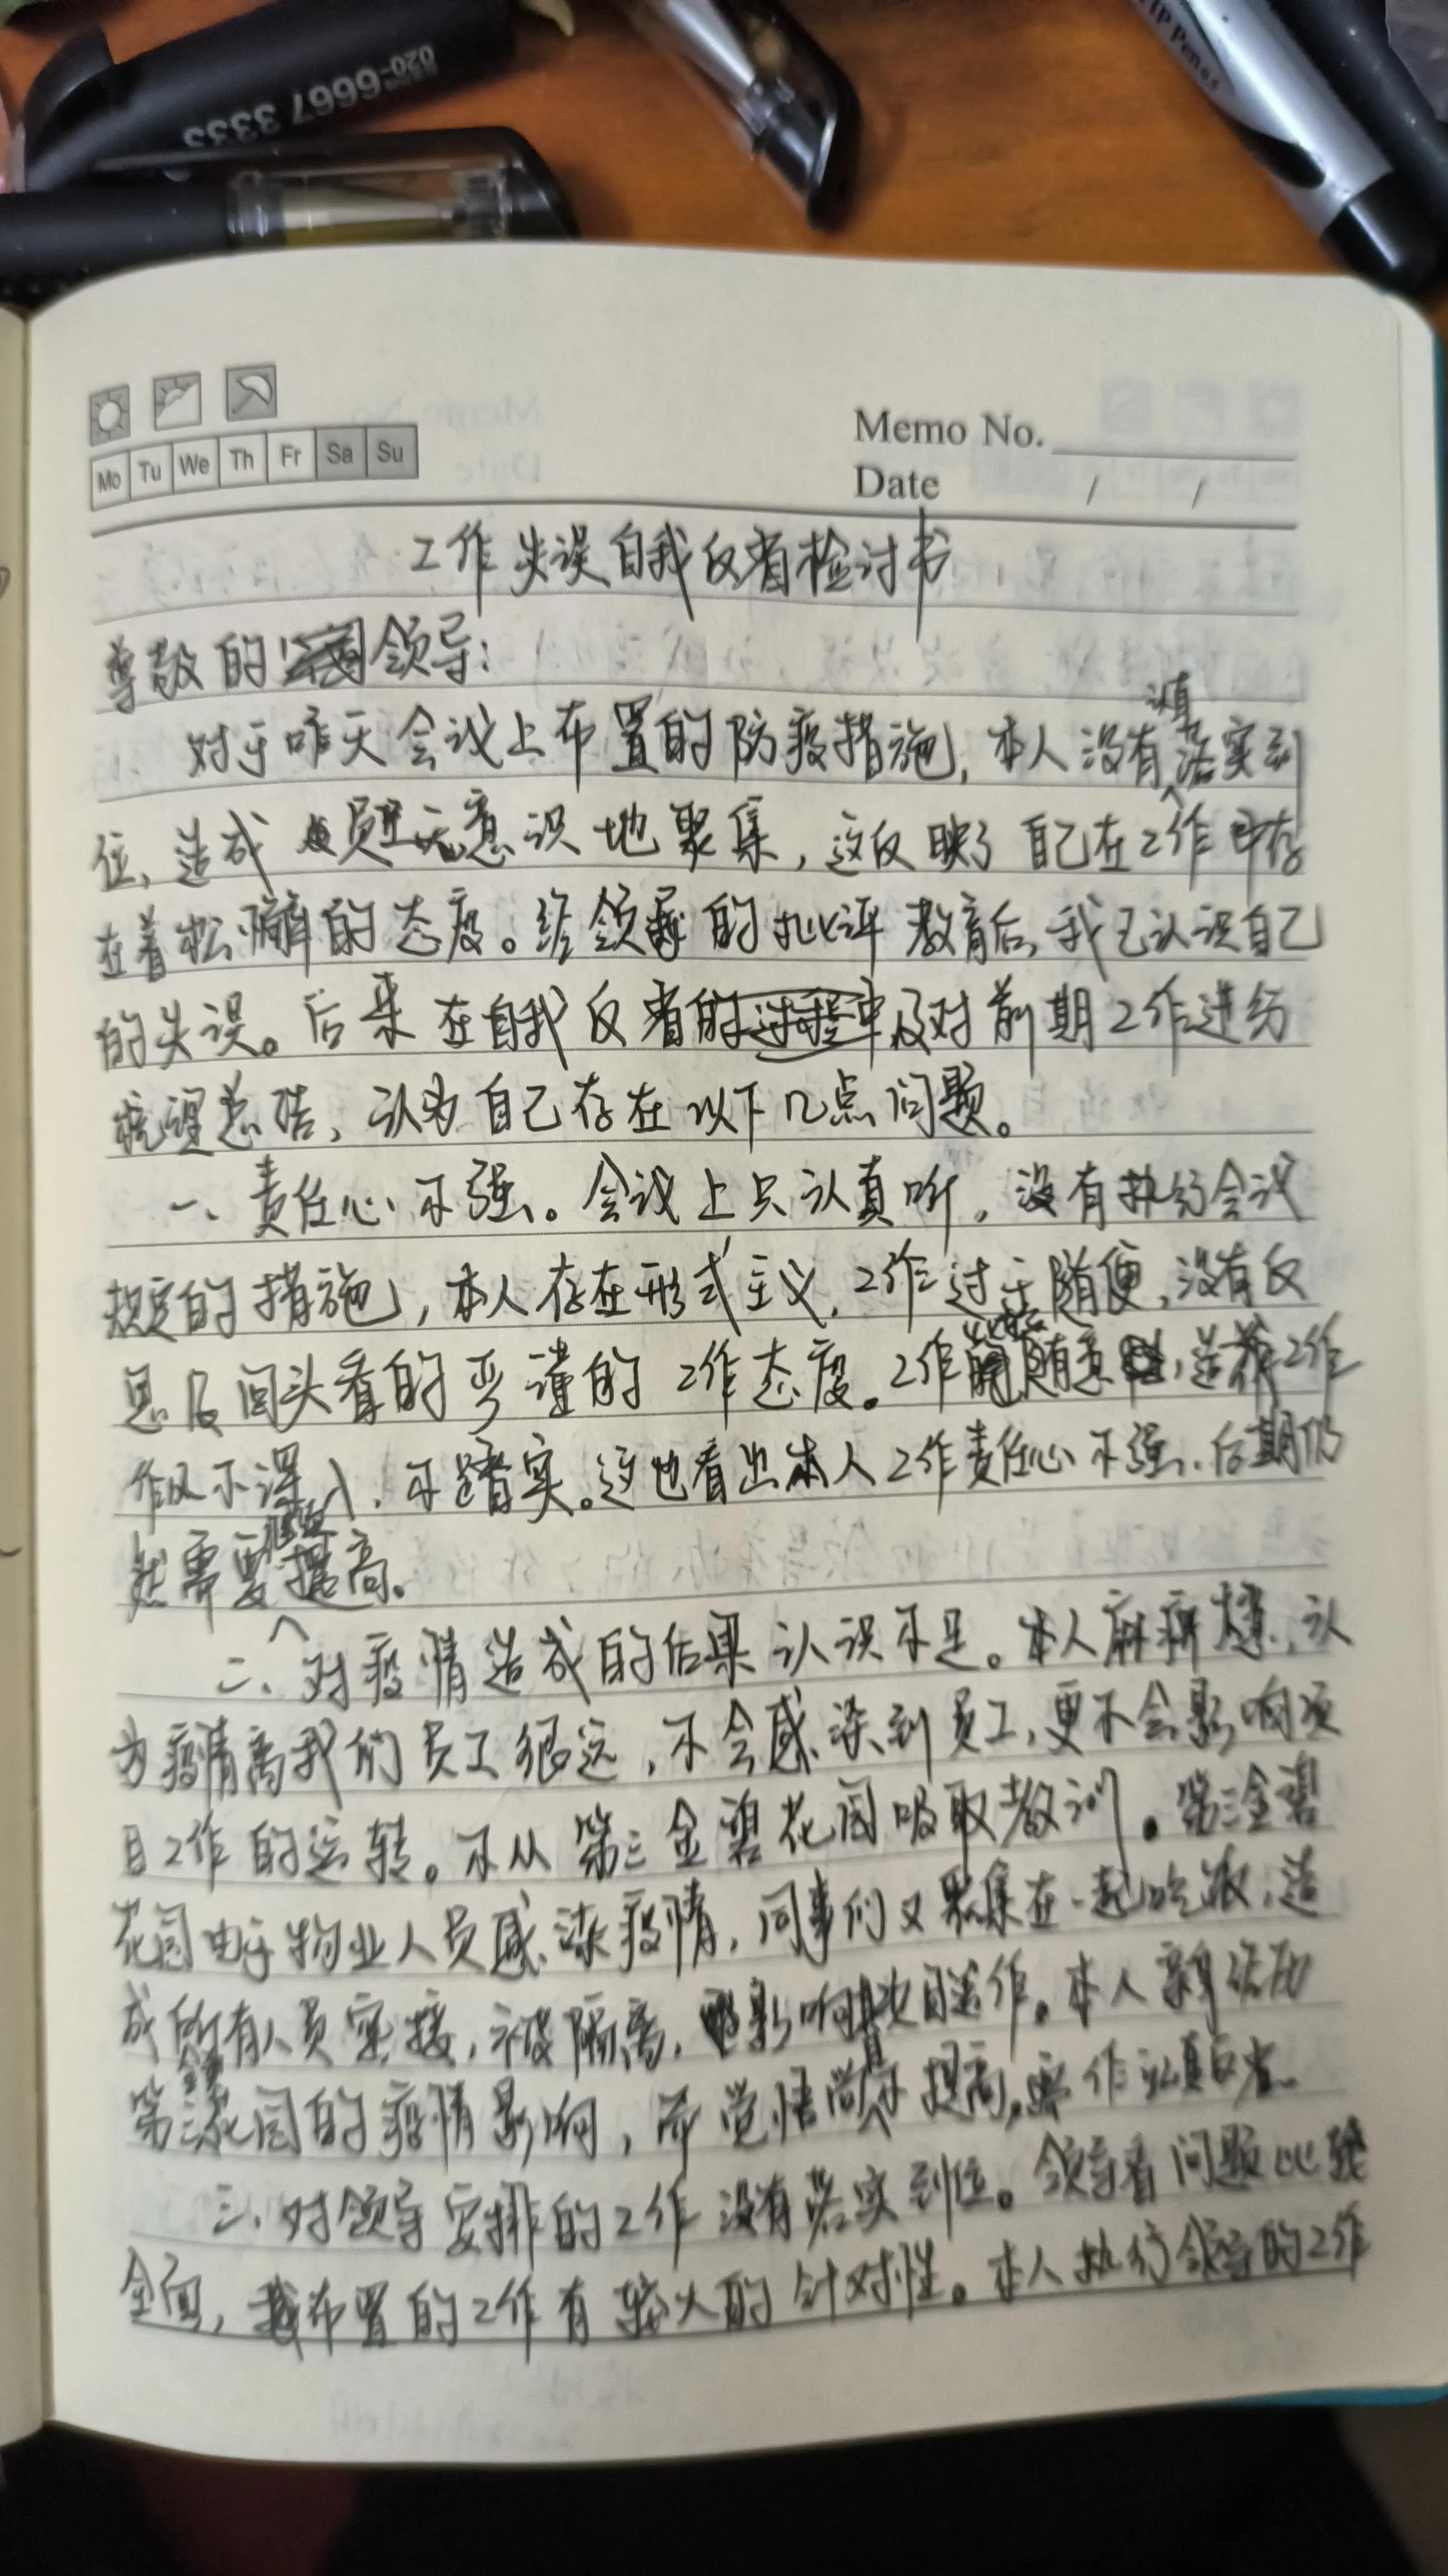 020-6667 3333
Tip Pens
Mo Tu We Th Fr Sa Su
Memo No.
Date / /
工作失误自我反省检讨书
尊敬的领导:
对于昨天会议上布置的防疫措施,本人没有认真落实到
位,造成员工无意识地聚集,这反映了自己在工作中存
在着松懈的态度。经领导的批评教育后,我已认识自己
的失误。后来在自我反省的及对前期工作进行
梳理总结,认为自己存在以下几点问题。
一、责任心不强。会议上只认真听,没有执行会议
规定的措施,本人存在形式主义,工作过于随便,没有反
思及回头看的严谨的工作态度。工作比较随意,造成工作
作风不深入,不踏实。这也看出本人工作责任心不强,后期仍
然需要提高。
二、对疫情造成的后果认识不足。本人麻痹大意,认
为疫情离我们员工很远,不会感染到员工,更不会影响项
目工作的运转。不从第三金碧花园吸取教训。第三金碧
花园由于物业人员感染疫情,同事们又聚集在一起吃饭,造
成所有人员密接,被隔离,影响项目运作。本人亲身经历
第三金碧花园的疫情影响,而觉悟尚不提高,要作认真反省。
三、对领导安排的工作没有落实到位。领导看问题比较
全面,布置的工作有较大的针对性。本人执行领导的工作